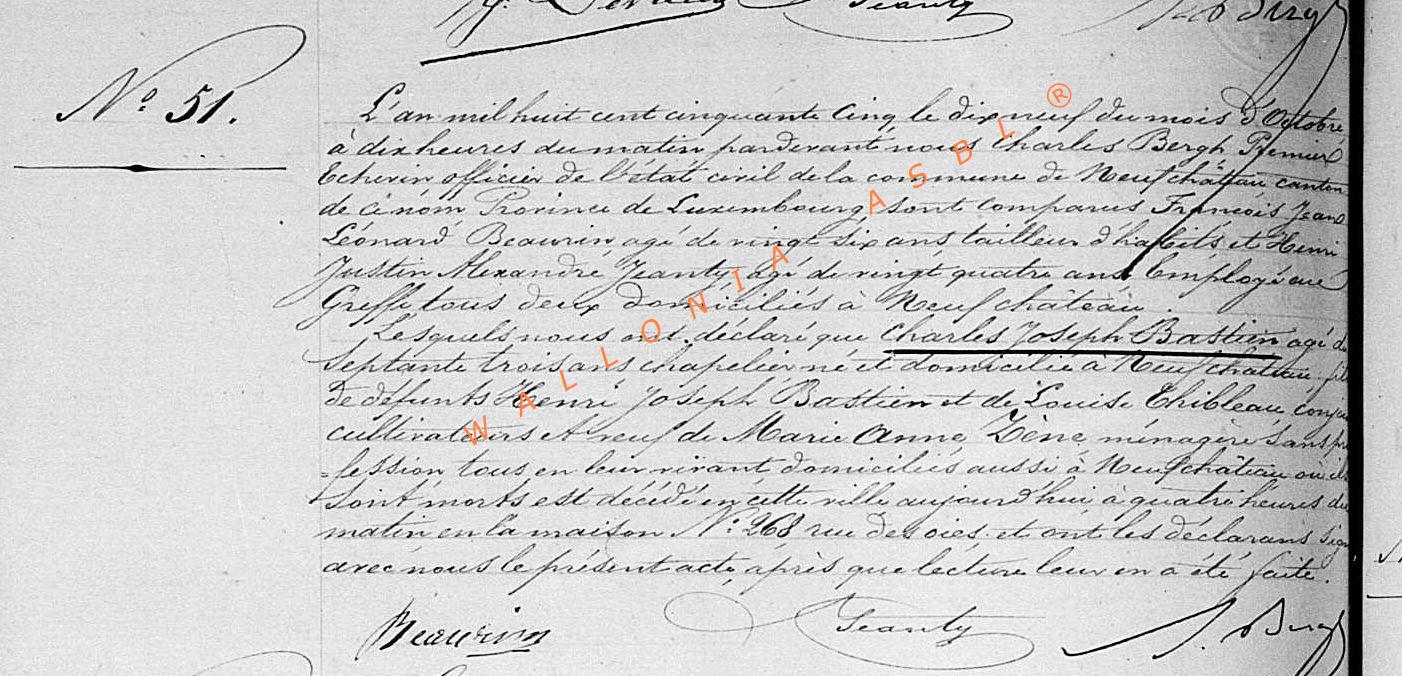 Jeanty
N° 51.
L'an mil huit cent cinquante Cinq le dix neuf du mois d'Octobre
à dix heures du matin pardevant nous Charles Bergh Premier
Echevin officier de l'état civil de la commune de Neufchâteau canton
de ce nom Province de Luxembourg, sont comparus François Jean
Léonard Beaurin agé de vingt six ans tailleur d'habits et Henri
Justin Alexandre Jeanty, agé de vingt quatre ans Employé au
Greffe tous deux domiciliés à Neufchâteau.
Lesquels nous ont déclaré que Charles Joseph Bastien agé de
Septante trois ans chapelier né et domicilié à Neufchateau fils
de défunts Henri Joseph Bastien et de Louise Thibleau
cultivateurs et veuf de Marie Anne Zène, ménagère Sans pro
=fession tous en leur vivant domiciliés aussi à Neufchâteau où ils
sont morts est décédé en cette ville aujourd'hui à quatre heures du
matin en la maison N° 268 rue des oies et ont les déclarans signé
avec nous le présent acte, après que lecture leur en a été faite.
Beaurin Jeanty
WALLONIA ASBL ®